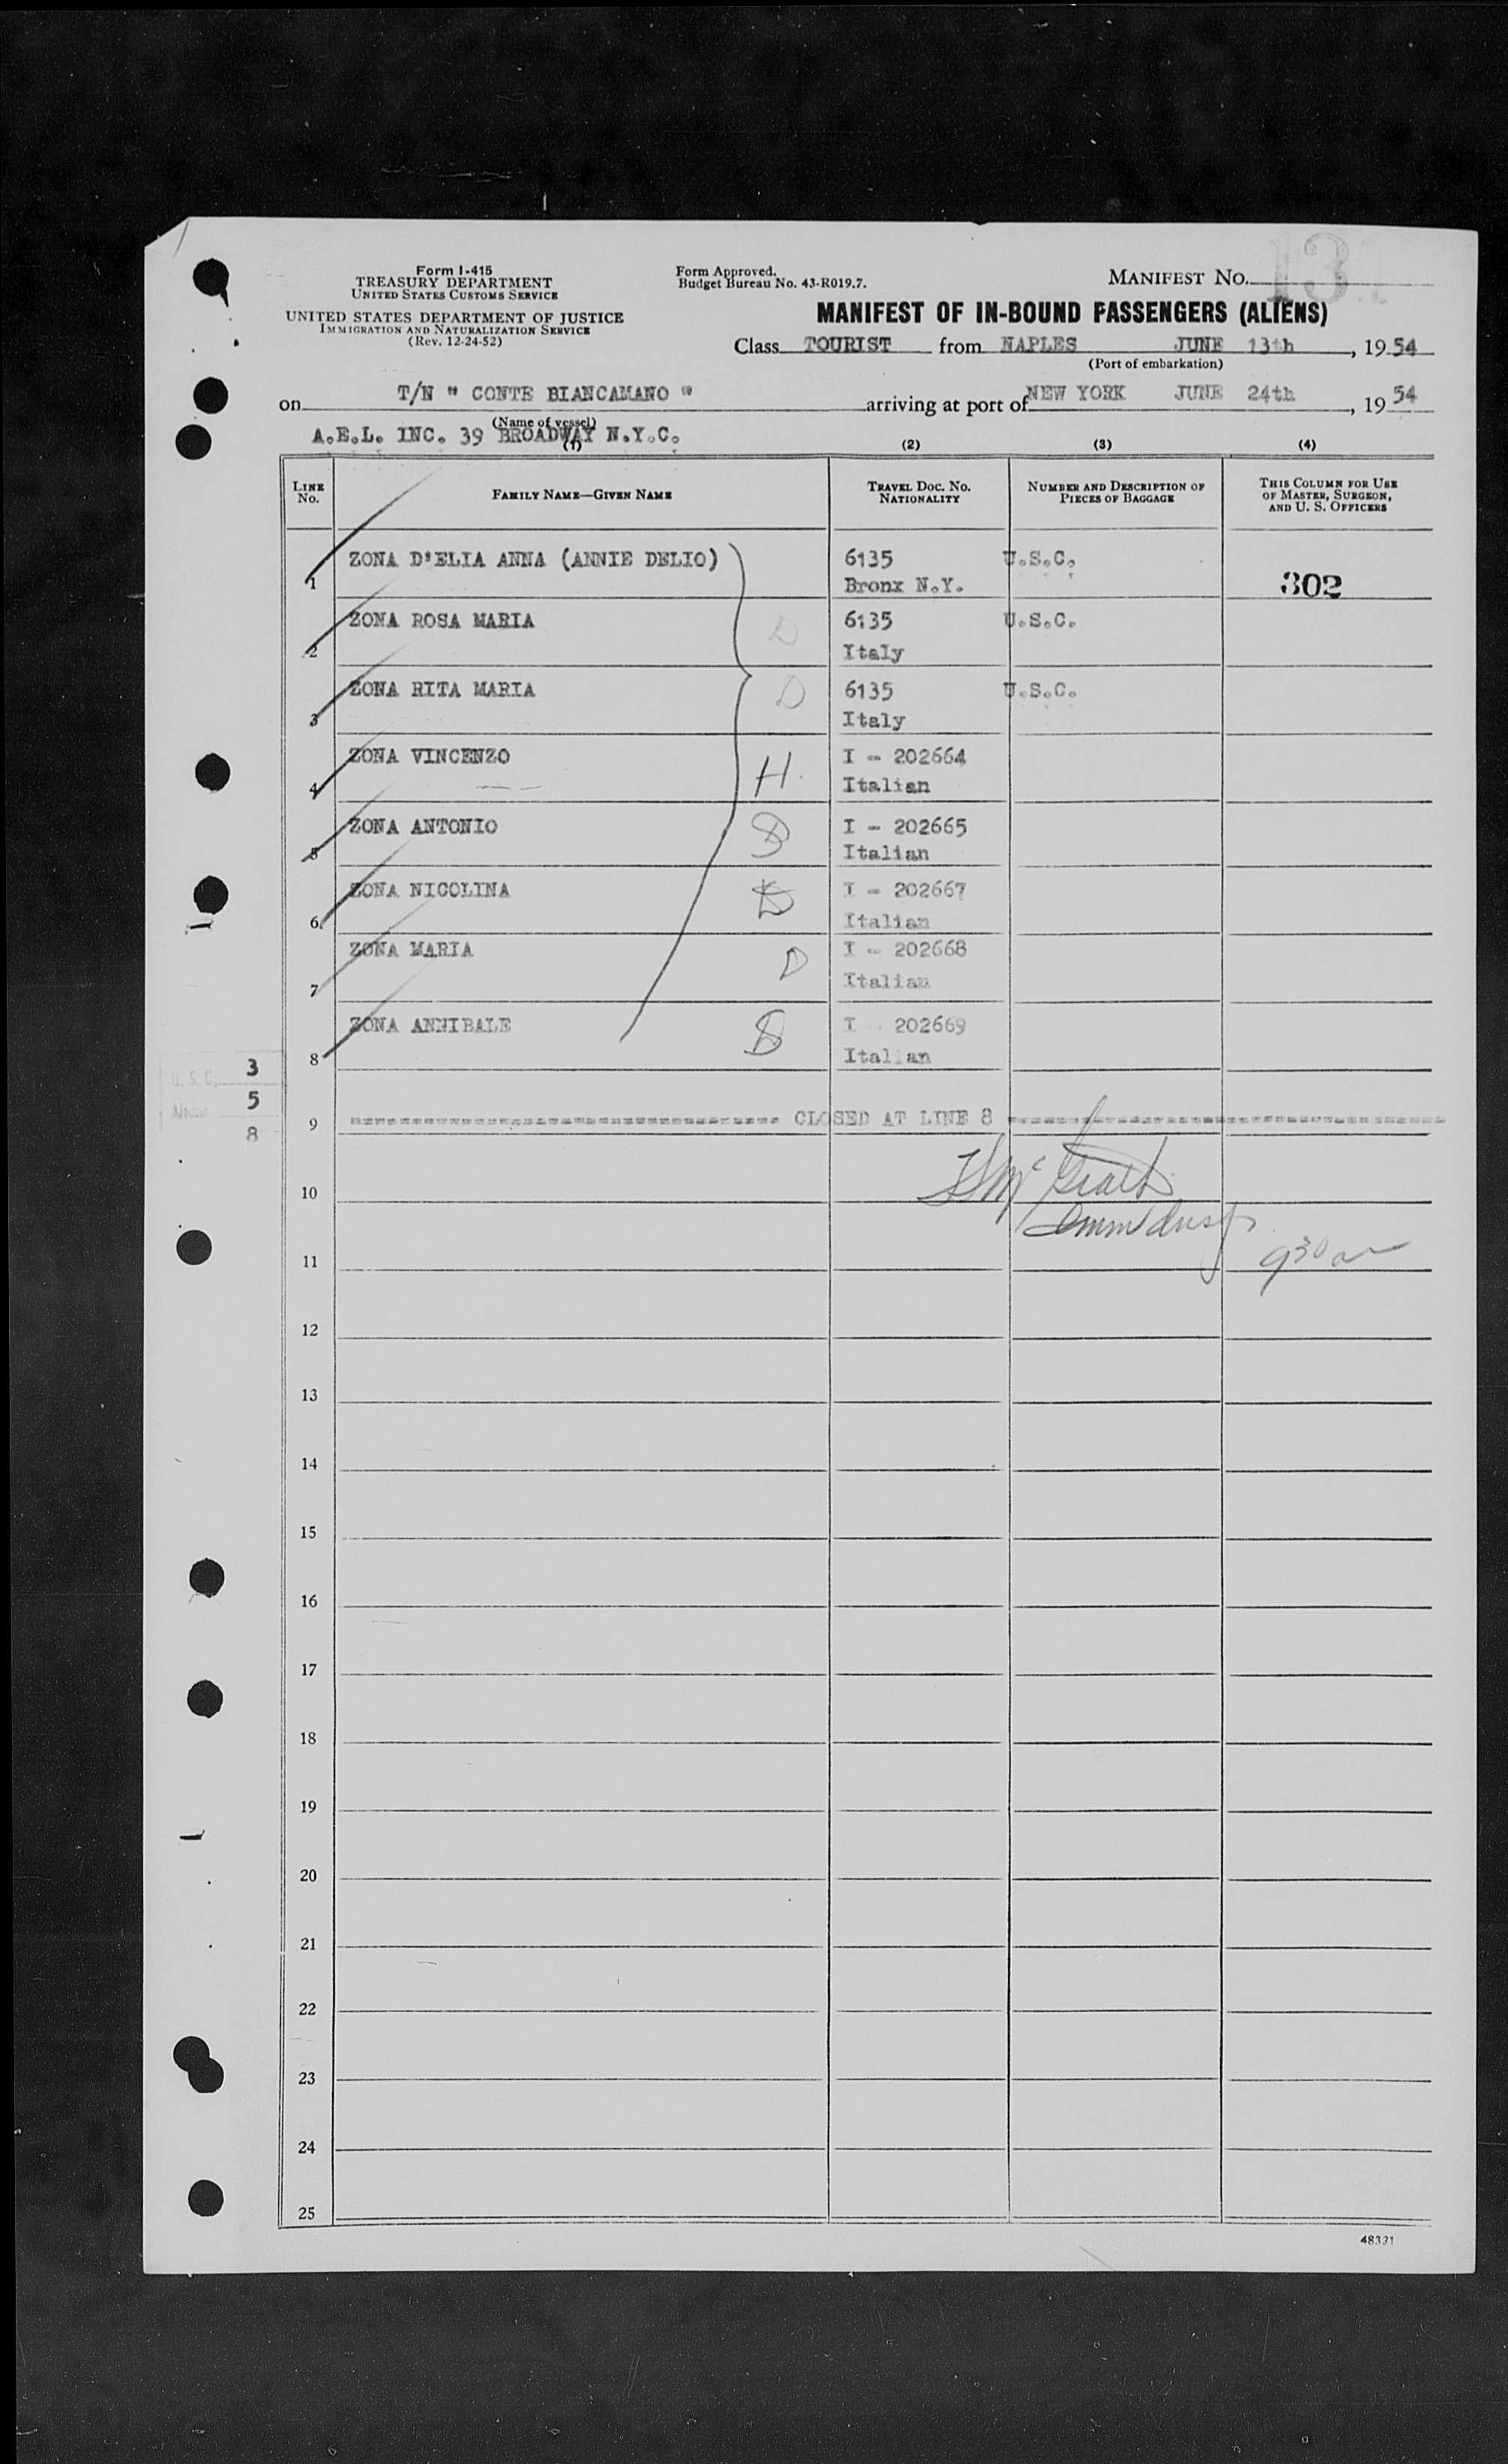 Form I-415
TREASURY DEPARTMENT
UNITED STATES CUSTOMS SERVICE
UNITED STATES DEPARTMENT OF JUSTICE
IMMIGRATION AND NATURALIZATION SERVICE
(Rev. 12-24-52)
Form Approved.
Budget Bureau No. 43-R019.7.
MANIFEST NO. 13
MANIFEST OF IN-BOUND PASSENGERS (ALIENS)
Class TOURIST from NAPLES JUNE 13th, 1954
(Port of embarkation)
on T/N " CONTE BIANCAMANO " arriving at port of NEW YORK JUNE 24th, 1954
(Name of vessel)
A.E.L. INC. 39 BROADWAY N.Y.C.
(1) (2) (3) (4)
LINE No. FAMILY NAME—GIVEN NAME TRAVEL DOC. NO. NATIONALITY NUMBER AND DESCRIPTION OF PIECES OF BAGGAGE THIS COLUMN FOR USE OF MASTER, SURGEON, AND U. S. OFFICERS
1 ZONA D'ELIA ANNA (ANNIE DELIO) 6135 U.S.C.
Bronx N.Y. 302
2 ZONA ROSA MARIA D 6135 U.S.C.
Italy
3 ZONA RITA MARIA D 6135 U.S.C.
Italy
4 ZONA VINCENZO H. I - 202664
Italian
5 ZONA ANTONIO I - 202665
Italian
6 ZONA NICOLINA I - 202667
Italian
7 ZONA MARIA D I - 202668
Italian
8 ZONA ANNIBALE I - 202669
Italian
U. S. C. 3
Aliens 5
8
9 CLOSED AT LINE 8
10
11 9 30 a
12
13
14
15
16
17
18
19
20
21
22
23
24
25
48321